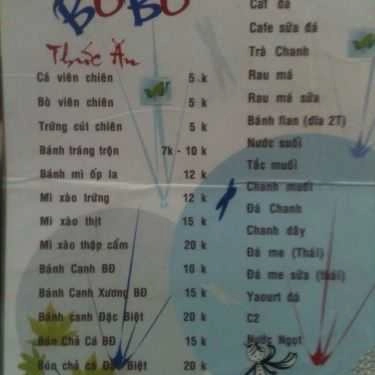 BOBO
Thức Ăn
Cá viên chiên 5 k
Bò viên chiên 5 k
Trứng cút chiên 5 k
Bánh tráng trộn 7k - 10 k
Bánh mì ốp la 12 k
Mì xào trứng 12 k
Mì xào thịt 15 k
Mì xào thập cẩm 20 k
Bánh Canh BĐ 10 k
Bánh Canh Xương BĐ 15 k
Bánh canh Đặc Biệt 20 k
Bún Chả Cá BĐ 15 k
Bún chả cá Đặc Biệt 20 k
Caf đá
Cafe sữa đá
Trà Chanh
Rau má
Rau má sữa
Bánh flan (dĩa 2T)
Nước suối
Tắc muối
Chanh muối
Đá Chanh
Chanh dây
Đá me (Thái)
Đá me sữa (thái)
Yaourt đá
C2
Nước Ngọt